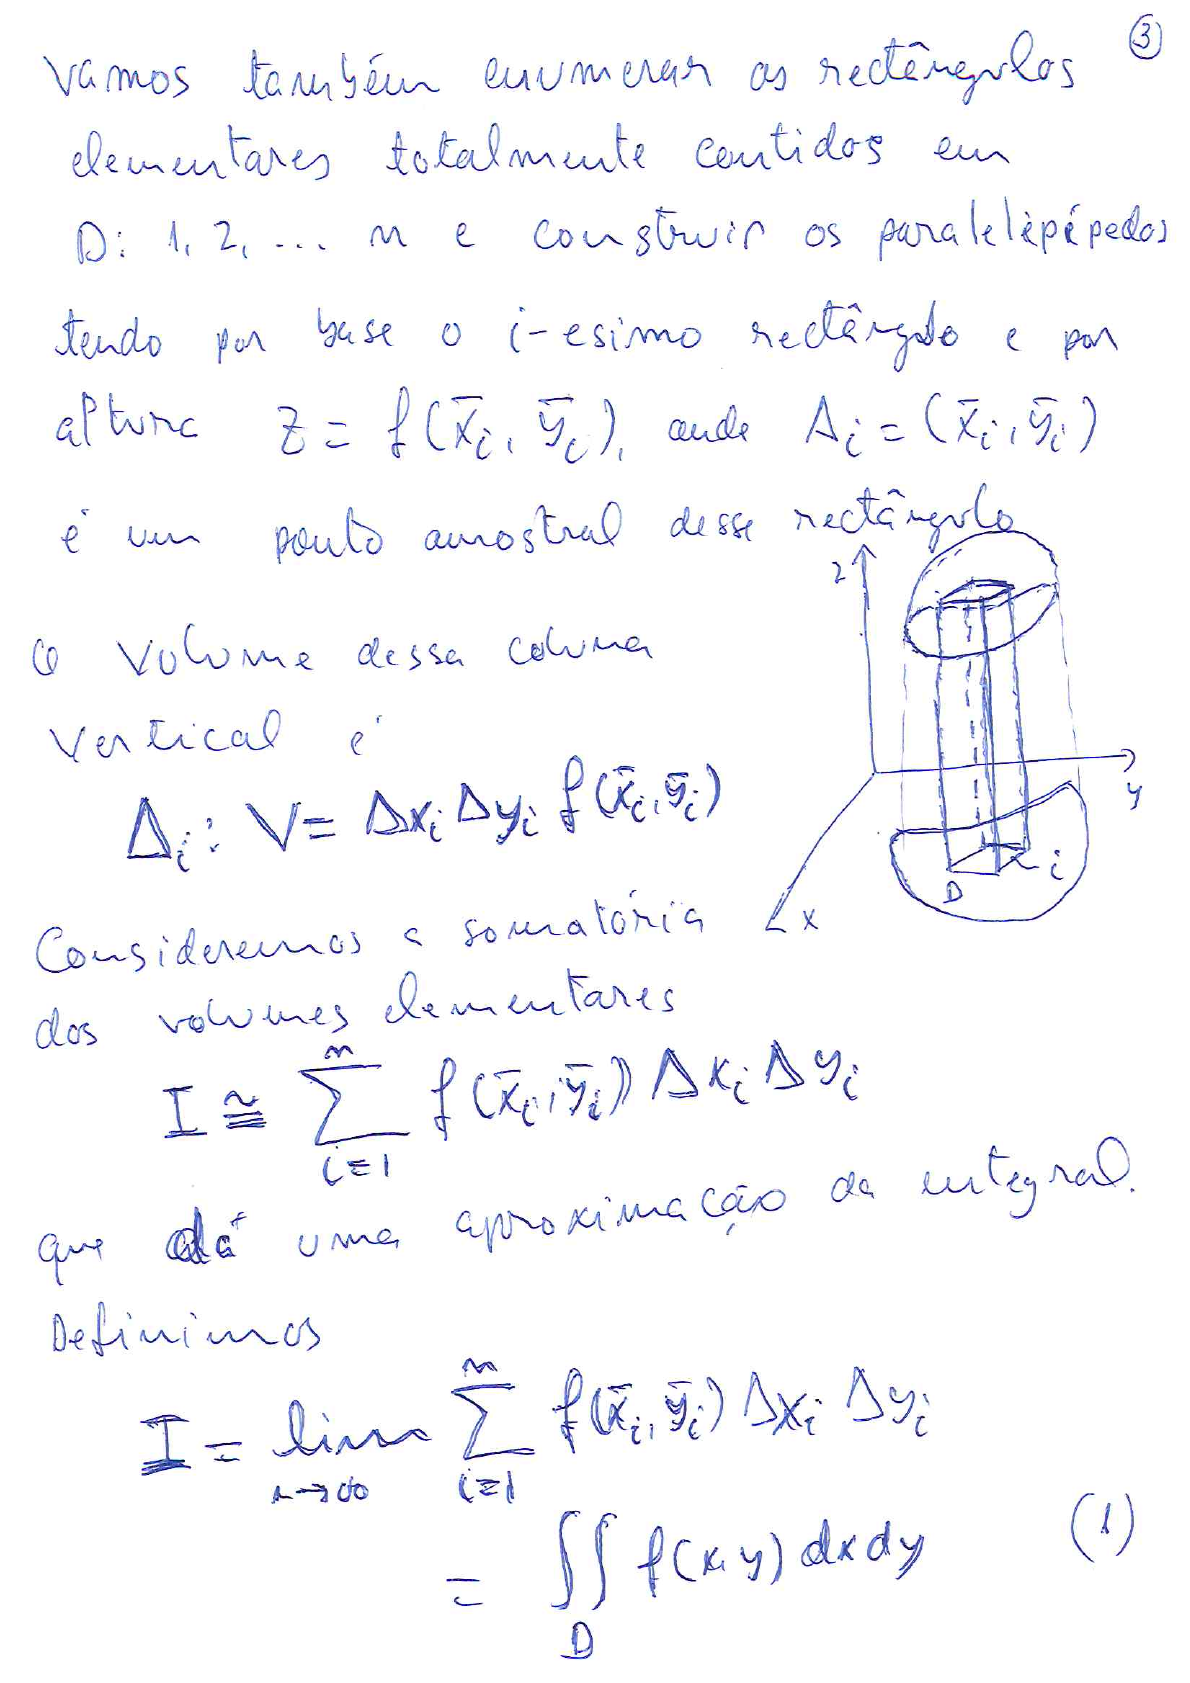 3
Vamos também enumerar os rectângulos
elementares totalmente contidos em
D: 1, 2, ... n e construir os paralelèpípedos
tendo por base o i-esimo rectângulo e por
altura z = f(x̄ᵢ, ȳᵢ), onde Aᵢ = (x̄ᵢ, ȳᵢ)
é um ponto amostral desse rectângulo
z
O volume dessa coluna
vertical é
y
Δᵢ: V = Δxᵢ Δyᵢ f(x̄ᵢ, ȳᵢ)
i
D
x
Consideremos a somatória
dos volumes elementares
I ≅ ∑ᵢ₌₁ⁿ f(x̄ᵢ, ȳᵢ) Δxᵢ Δyᵢ
que dá uma aproximação da integral.
Definimos
I = lim n→∞ ∑ᵢ₌₁ⁿ f(x̄ᵢ, ȳᵢ) Δxᵢ Δyᵢ
= ∬ D f(x, y) dx dy (1)